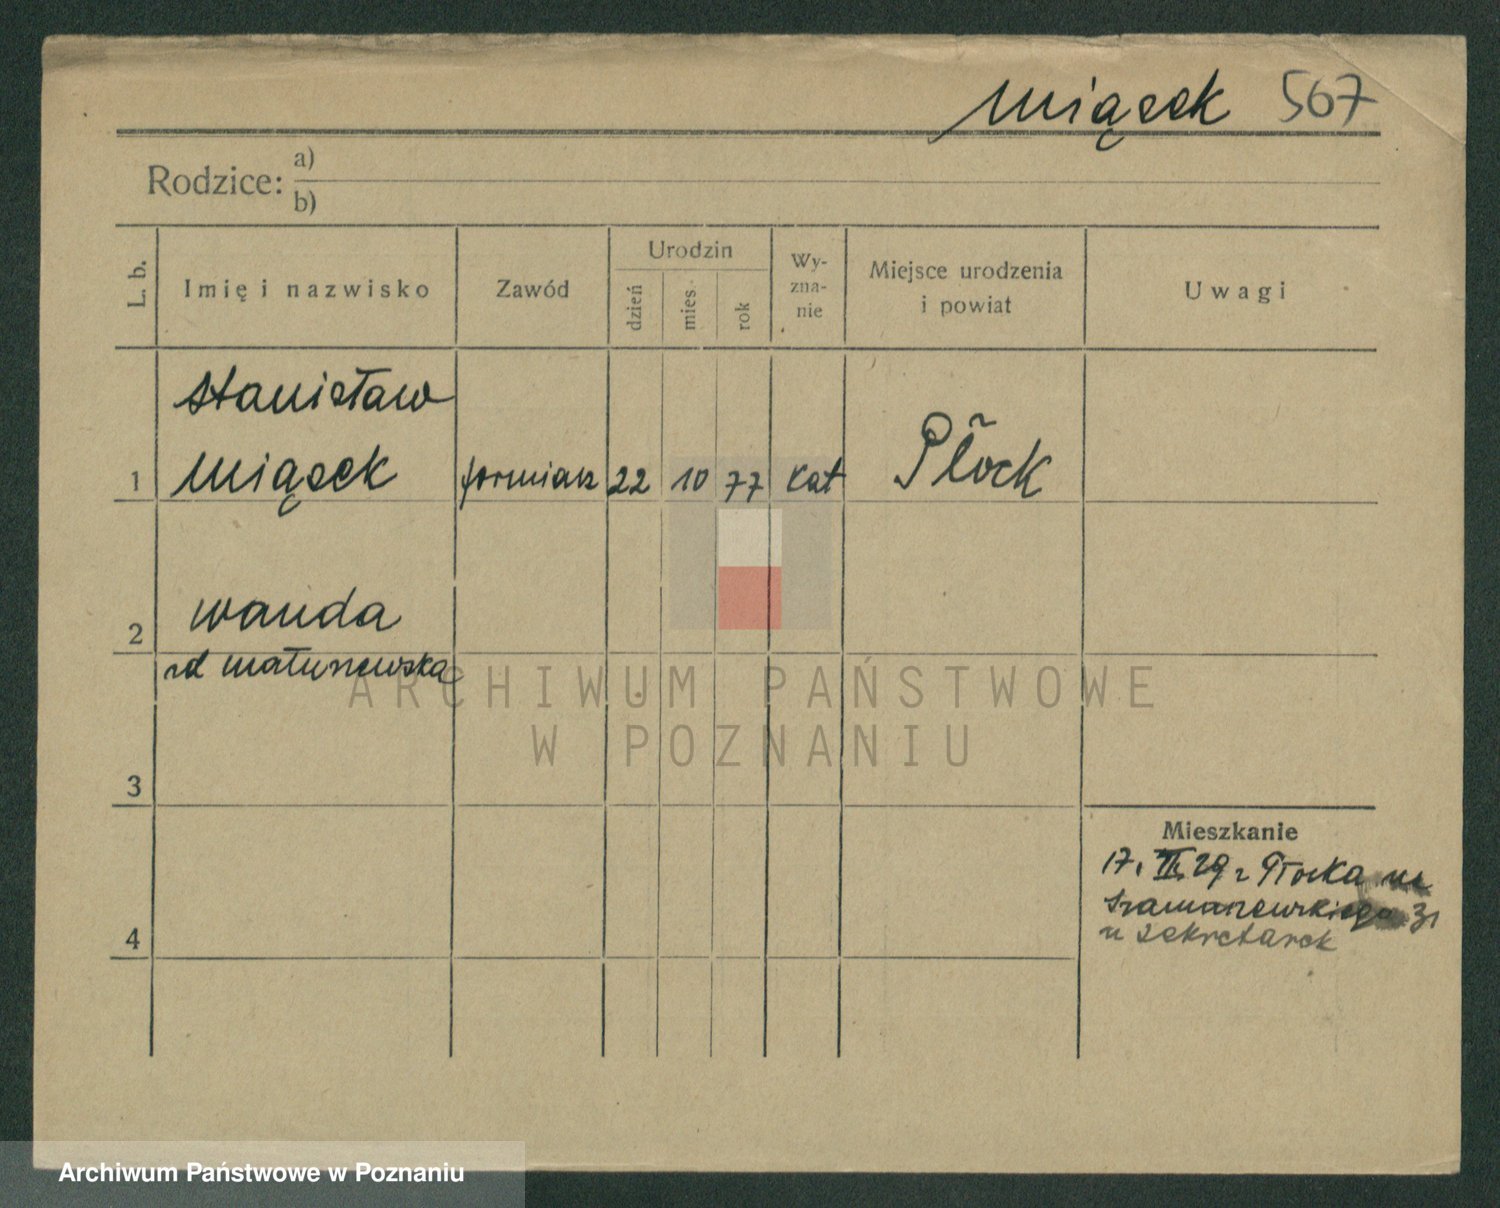 Miąsek 567
Rodzice: a)
b)
L. b.
Imię i nazwisko
Zawód
Urodzin
dzień
mies.
rok
Wy-
zna-
nie
Miejsce urodzenia
i powiat
Uwagi
Stanisław
1 Miąsek formiarz 22 10 77 kat Płock
2 Wanda
3
4
Mieszkanie
17. 29 z Płocka
Szamarzewskiego 31
u Sekretarek
ARCHIWUM PAŃSTWOWE
W POZNANIU
Archiwum Państwowe w Poznaniu